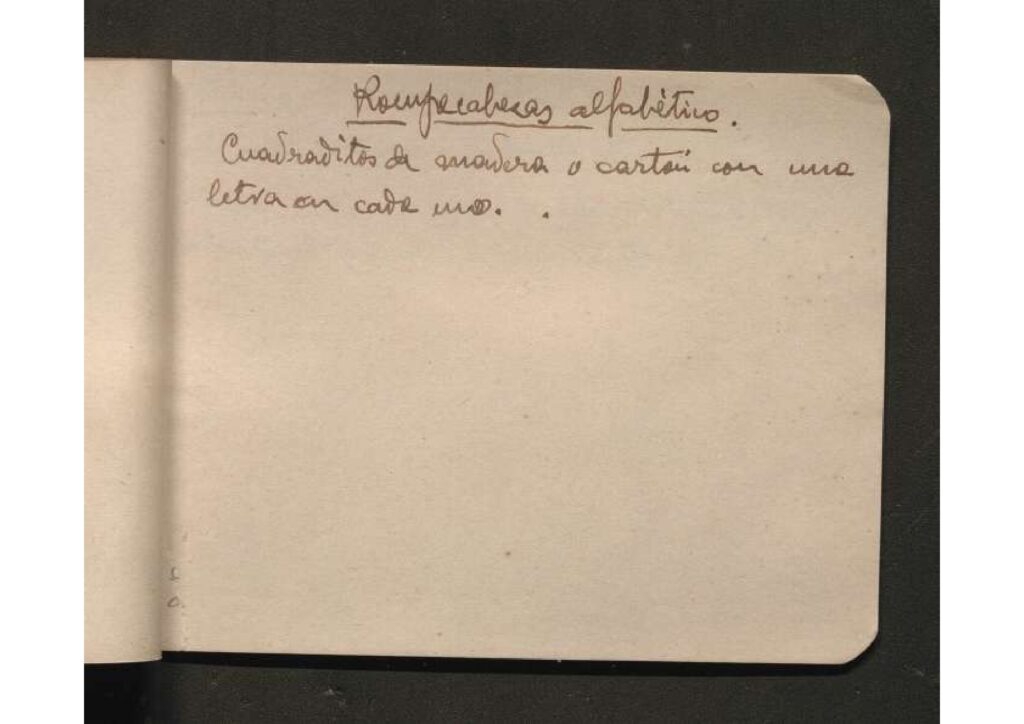 Rompecabezas alfabético.
Cuadraditos de madera o cartón con una
letra en cada uno. .